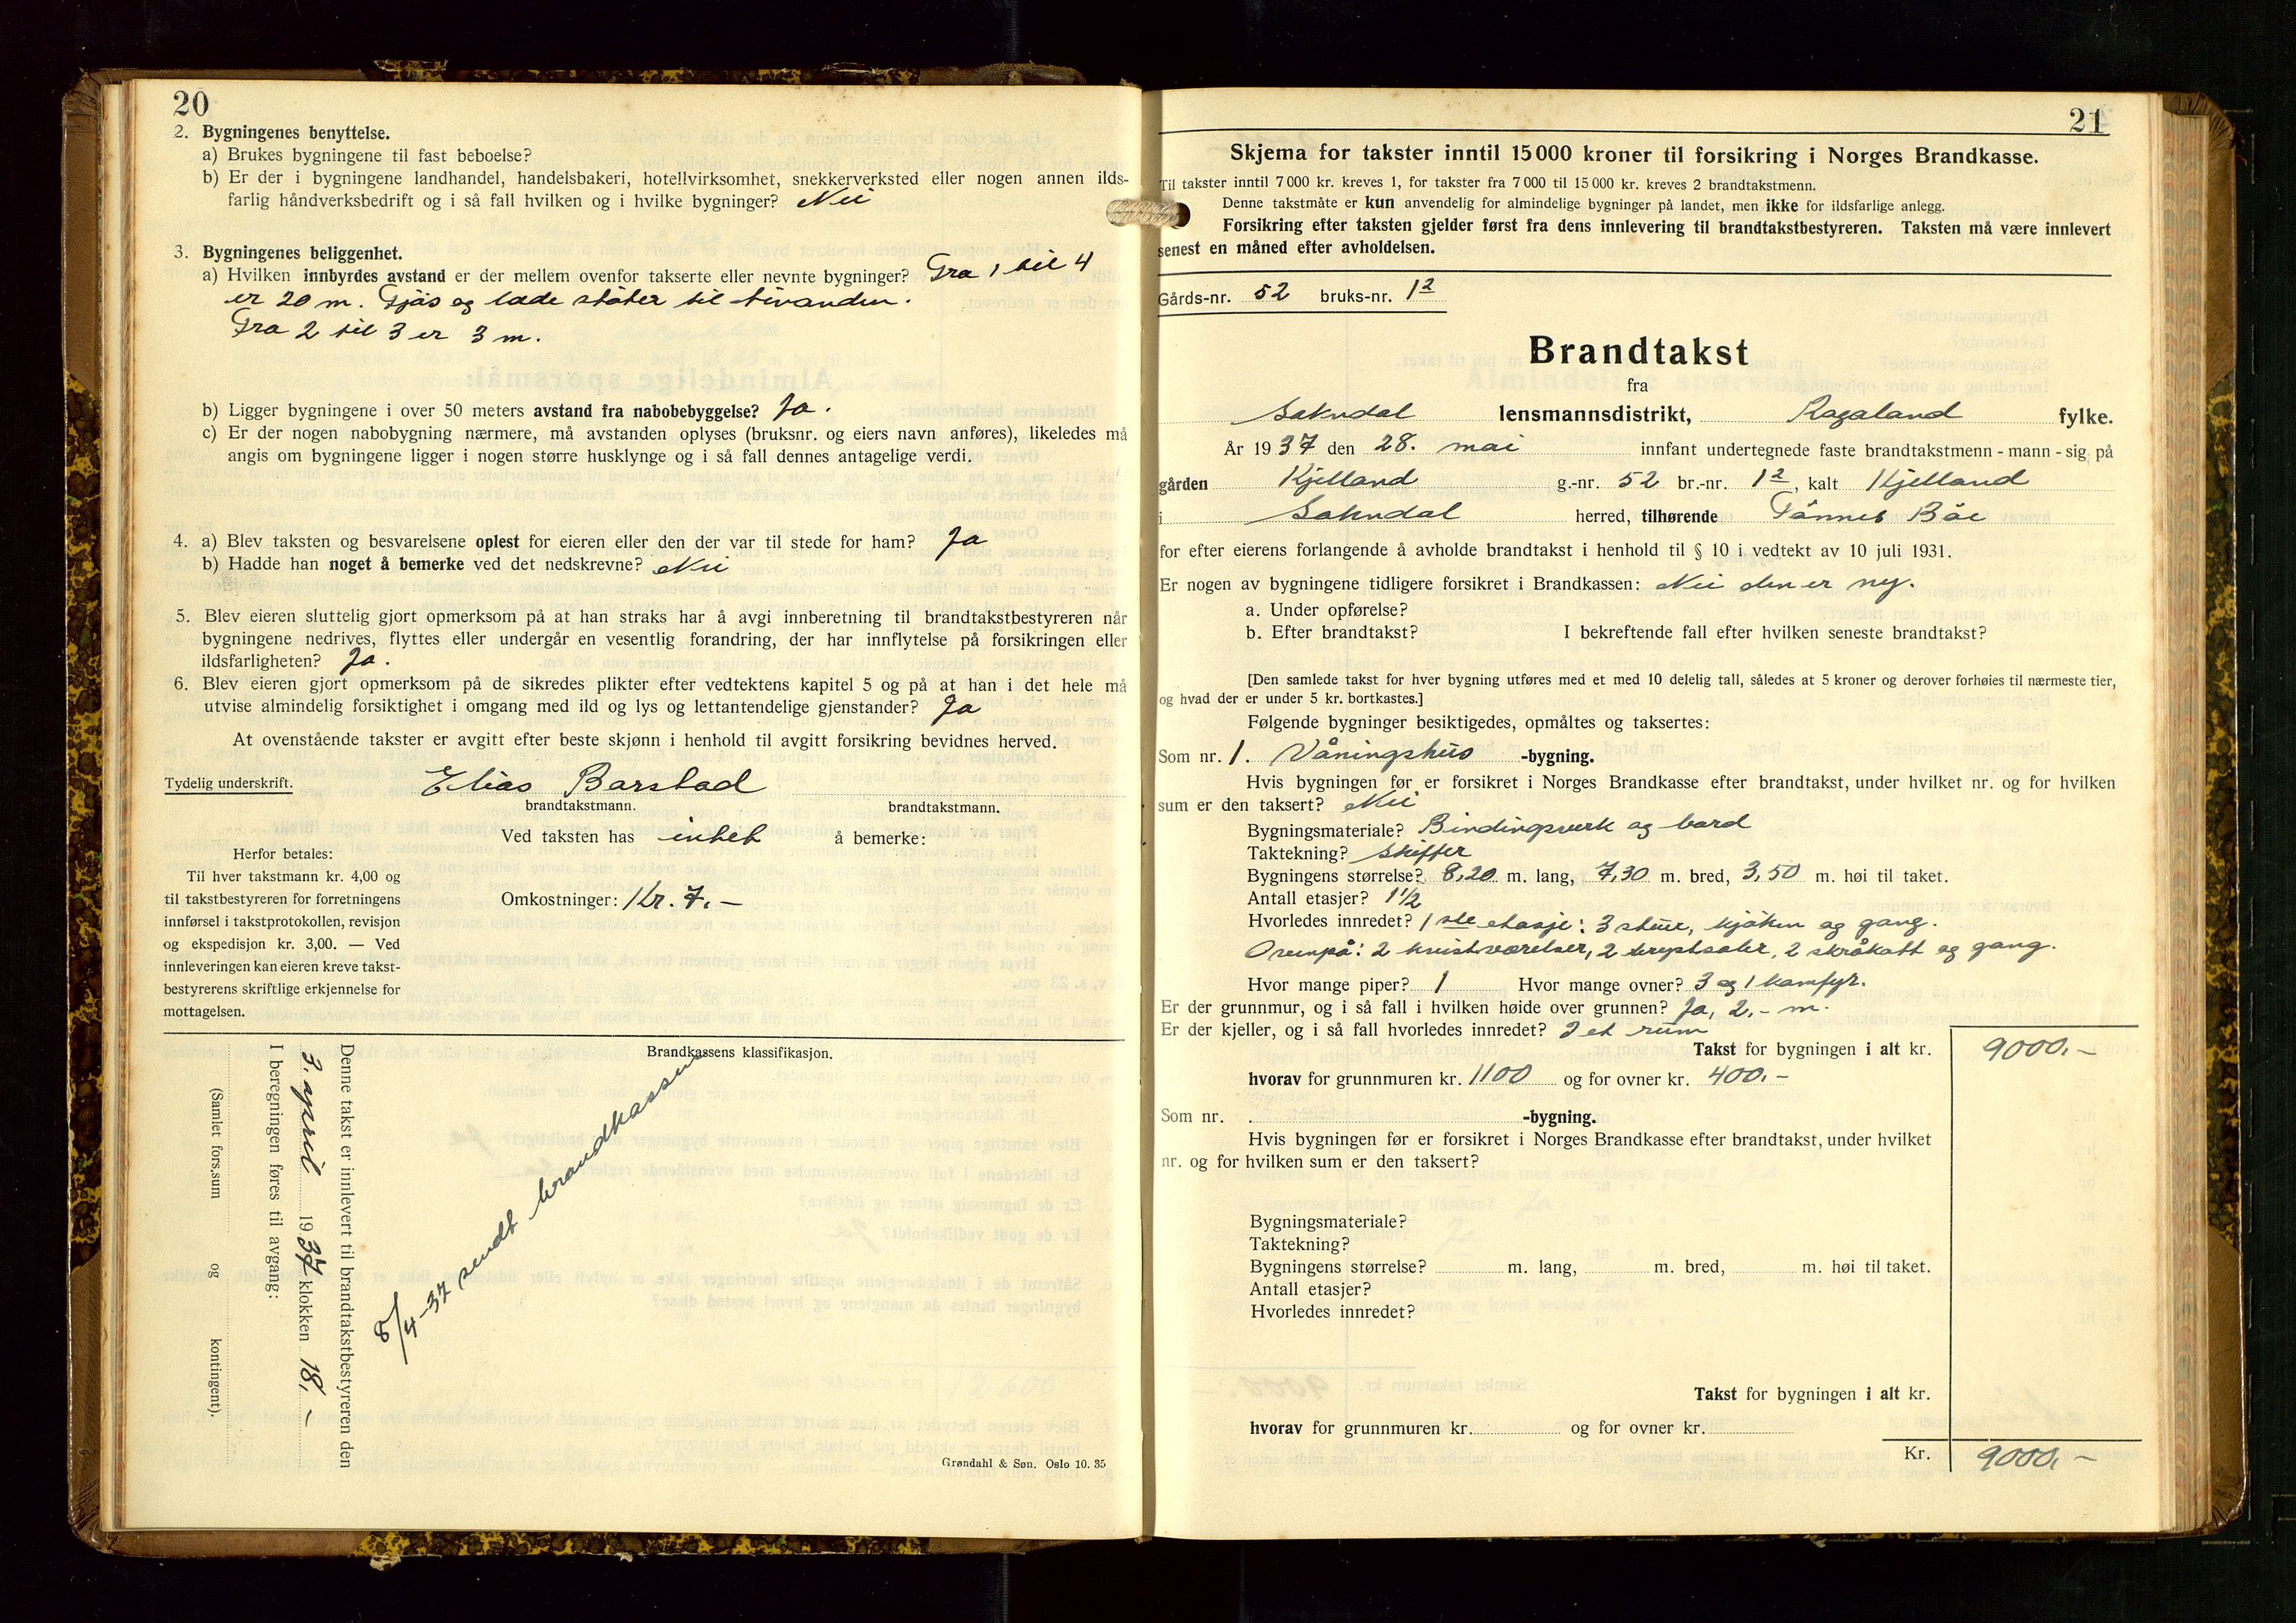 20
2. Bygningenes benyttelse.
a) Brukes bygningene til fast beboelse?
b) Er der i bygningene landhandel, handelsbakeri, hotellvirksomhet, snekkerverksted eller nogen annen ilds-
farlig håndverksbedrift og i så fall hvilken og i hvilke bygninger? Nei
3. Bygningenes beliggenhet.
a) Hvilken innbyrdes avstand er der mellem ovenfor takserte eller nevnte bygninger? Fra 1 til 4
er 20 m. Fjøs og lade støter til hinanden.
Fra 2 til 3 er 3 m.
b) Ligger bygningene i over 50 meters avstand fra nabobebyggelse? Ja.
c) Er der nogen nabobygning nærmere, må avstanden oplyses (bruksnr. og eiers navn anføres), likeledes må
angis om bygningene ligger i nogen større husklynge og i så fall dennes antagelige verdi.
4. a) Blev taksten og besvarelsene oplest for eieren eller den der var til stede for ham? Ja
b) Hadde han noget å bemerke ved det nedskrevne? Nei
5. Blev eieren sluttelig gjort opmerksom på at han straks har å avgi innberetning til brandtakstbestyreren når
bygningene nedrives, flyttes eller undergår en vesentlig forandring, der har innflytelse på forsikringen eller
ildsfarligheten? Ja.
6. Blev eieren gjort opmerksom på de sikredes plikter efter vedtektens kapitel 5 og på at han i det hele må
utvise almindelig forsiktighet i omgang med ild og lys og lettantendelige gjenstander? Ja
At ovenstående takster er avgitt efter beste skjønn i henhold til avgitt forsikring bevidnes herved.
Tydelig underskrift. Elias Barstad
brandtakstmann. brandtakstmann.
Ved taksten has intet å bemerke:
Herfor betales:
Til hver takstmann kr. 4,00 og
til takstbestyreren for forretningens
innførsel i takstprotokollen, revisjon
og ekspedisjon kr. 3,00. — Ved
innleveringen kan eieren kreve takst-
bestyrerens skriftlige erkjennelse for
mottagelsen.
Omkostninger: Kr. 7.-
Brandkassens klassifikasjon.
Denne takst er innlevert til brandtakstbestyreren den
3. april 1937 klokken 18,-
I beregningen føres til avgang:
(Samlet fors.sum og kontingent).
8/4-37 sendt brandkassen
Grøndahl & Søn. Oslo 10. 35
21
Skjema for takster inntil 15000 kroner til forsikring i Norges Brandkasse.
Til takster inntil 7 000 kr. kreves 1, for takster fra 7 000 til 15 000 kr. kreves 2 brandtakstmenn.
Denne takstmåte er kun anvendelig for almindelige bygninger på landet, men ikke for ildsfarlige anlegg.
Forsikring efter taksten gjelder først fra dens innlevering til brandtakstbestyreren. Taksten må være innlevert
senest en måned efter avholdelsen.
Gårds-nr. 52 bruks-nr. 12
Brandtakst
fra
Sokndal lensmannsdistrikt, Rogaland fylke.
År 1937 den 28. mai innfant undertegnede faste brandtakstmenn - mann - sig på
gården Kjelland g.-nr. 52 br.-nr. 12, kalt Kjelland
i Sokndal herred, tilhørende Tånnes Bøe
for efter eierens forlangende å avholde brandtakst i henhold til § 10 i vedtekt av 10 juli 1931.
Er nogen av bygningene tidligere forsikret i Brandkassen: Nei den er ny.
a. Under opførelse?
b. Efter brandtakst? I bekreftende fall efter hvilken seneste brandtakst?
[Den samlede takst for hver bygning utføres med et med 10 delelig tall, således at 5 kroner og derover forhøies til nærmeste tier,
og hvad der er under 5 kr. bortkastes.]
Følgende bygninger besiktigedes, opmåltes og taksertes:
Som nr. 1. Våningshus -bygning.
Hvis bygningen før er forsikret i Norges Brandkasse efter brandtakst, under hvilket nr. og for hvilken
sum er den taksert? Nei
Bygningsmateriale? Bindingsverk og bord
Taktekning? Skiffer
Bygningens størrelse? 8,20 m. lang, 7,30 m. bred, 3,50 m. høi til taket.
Antall etasjer? 1½
Hvorledes innredet? 1ste etasje: 3 stuer, kjøken og gang.
Ovenpå: 2 kvistværelser, 2 skråkott og gang.
Hvor mange piper? 1 Hvor mange ovner? 3 og 1 komfyr.
Er der grunnmur, og i så fall i hvilken høide over grunnen? Ja, 2,- m.
Er der kjeller, og i så fall hvorledes innredet? I et rum
Takst for bygningen i alt kr. 9000.-
hvorav for grunnmuren kr. 1100 og for ovner kr. 400.-
Som nr. -bygning.
Hvis bygningen før er forsikret i Norges Brandkasse efter brandtakst, under hvilket
nr. og for hvilken sum er den taksert?
Bygningsmateriale?
Taktekning?
Bygningens størrelse? m. lang, m. bred, m. høi til taket.
Antall etasjer?
Hvorledes innredet?
Takst for bygningen i alt kr.
hvorav for grunnmuren kr. og for ovner kr.
Kr. 9000,-